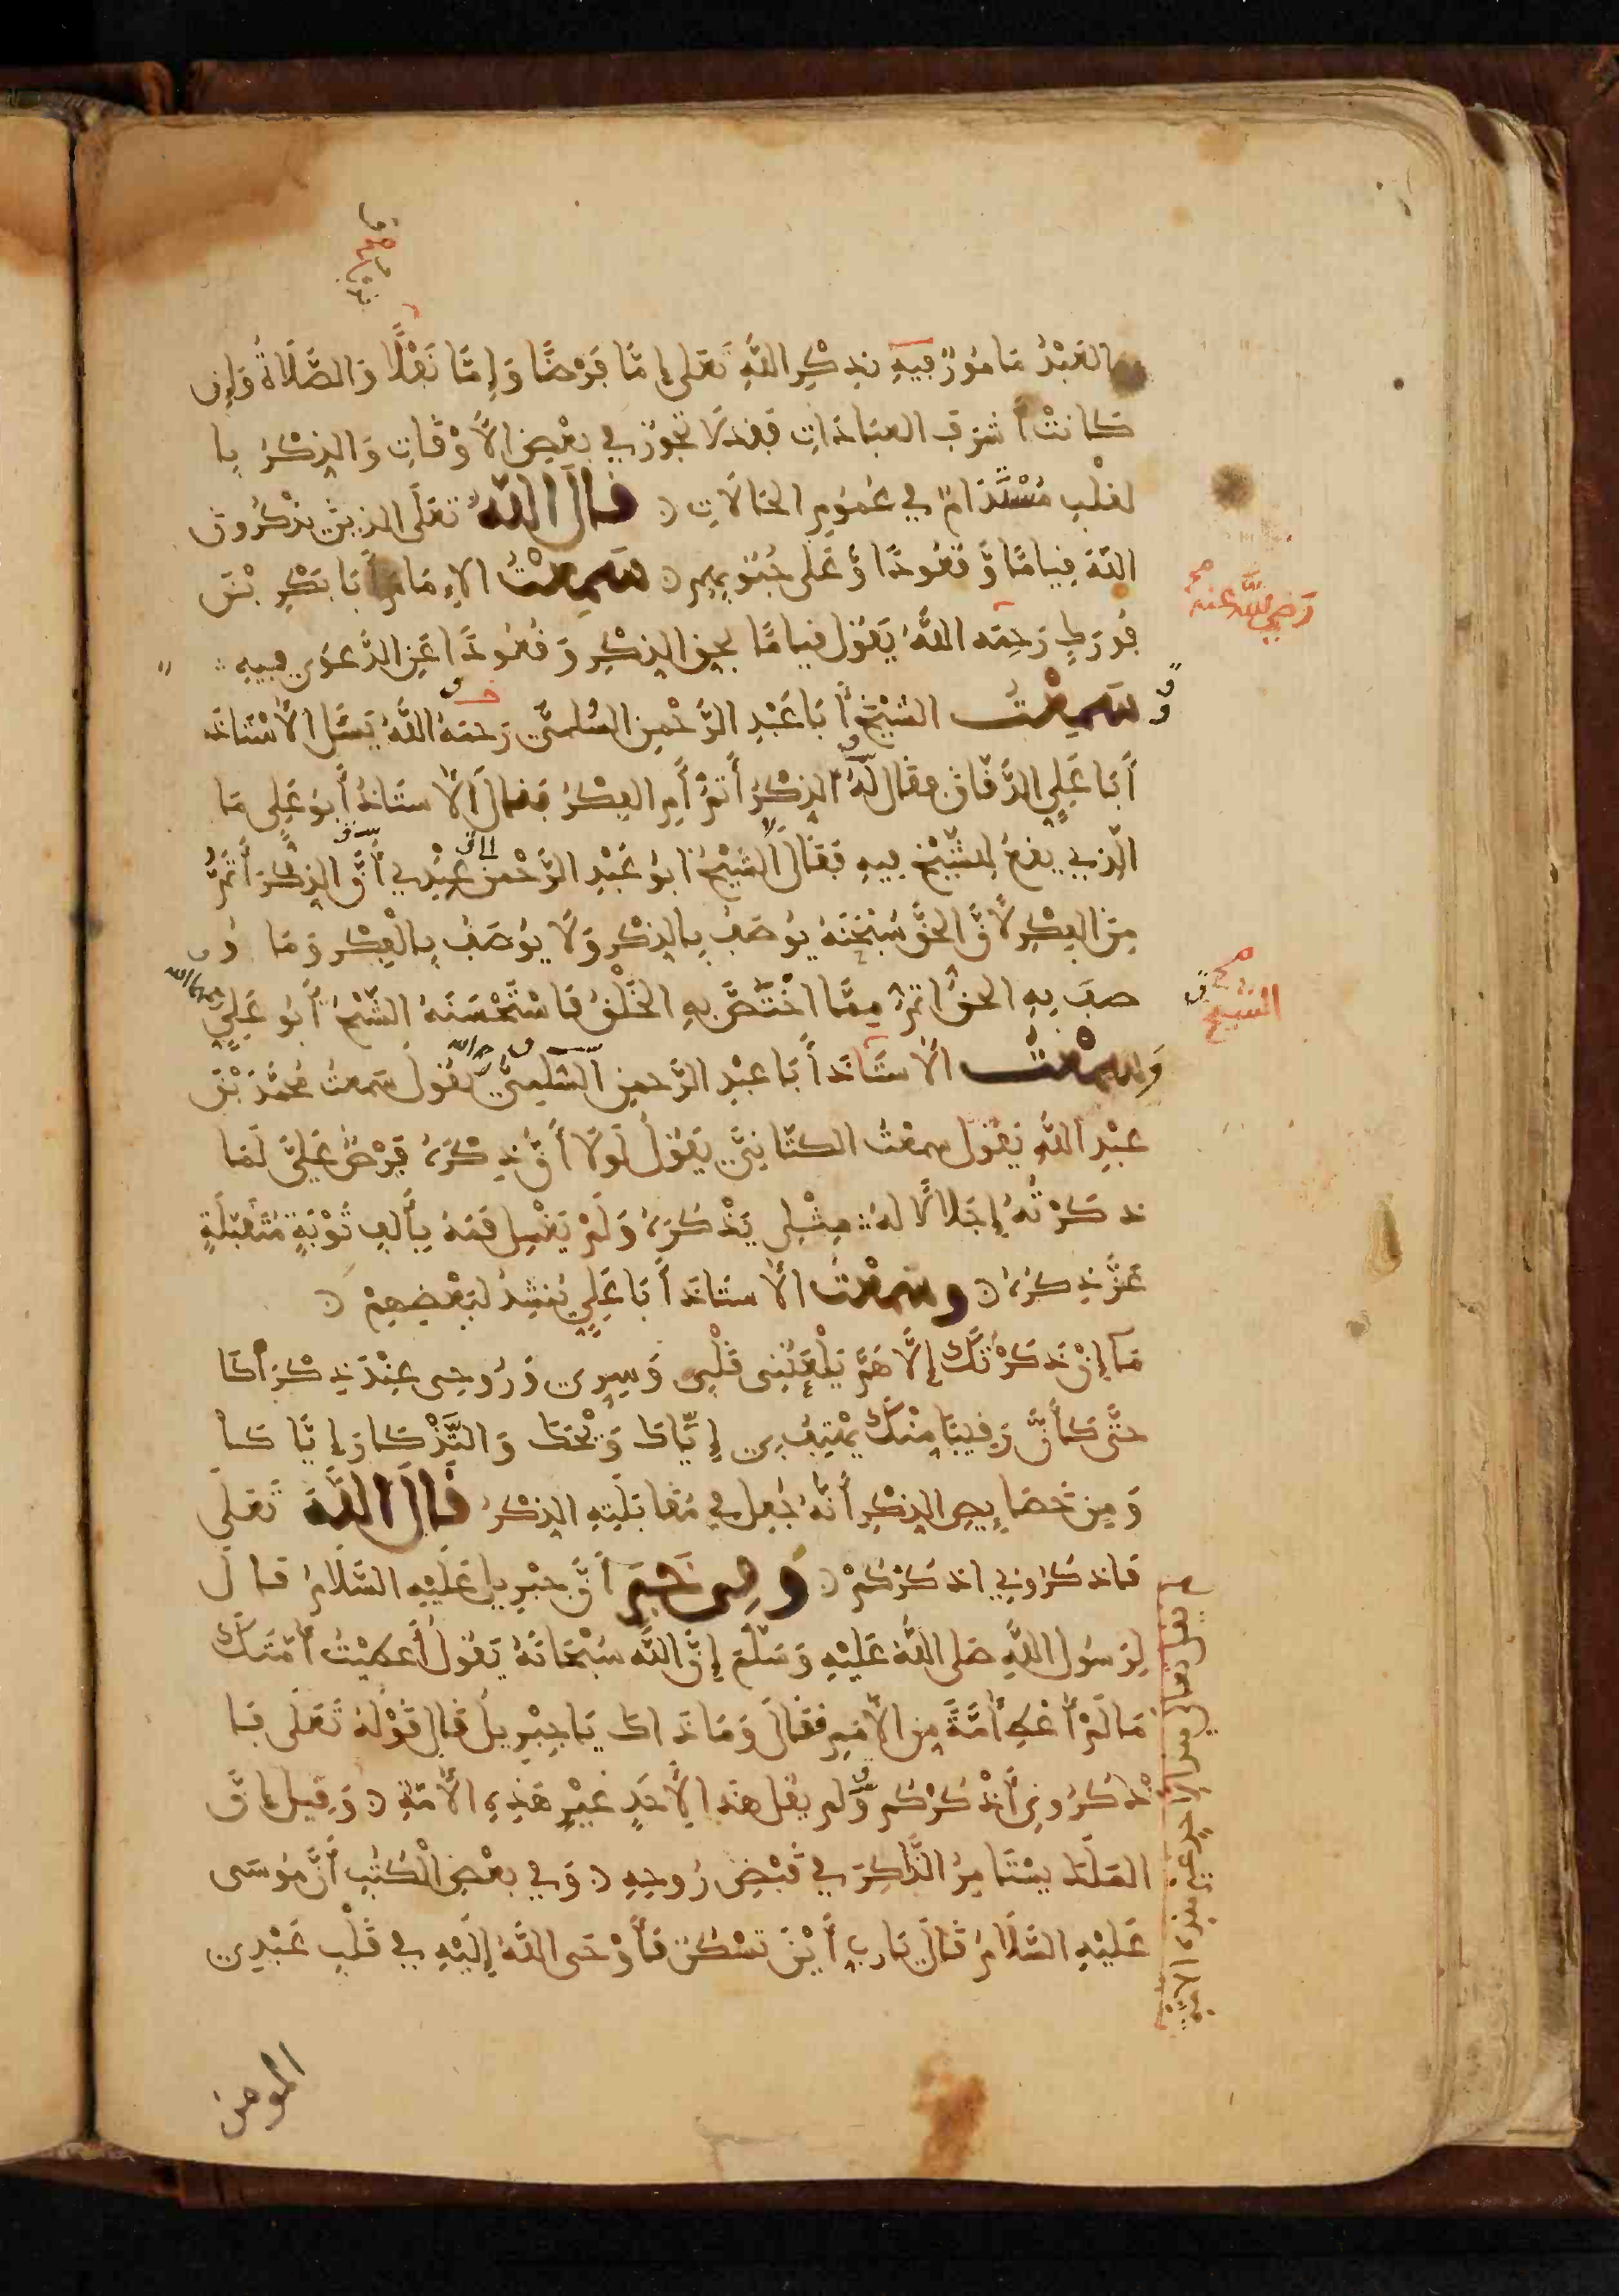 والعَبْدُ مَامُورٌ فِيهِ بِذِكْرِ اللَّهِ تَعَلى إِمَّا فَرْضًا وَإِمَّا نَفْلًا وَالصَّلَاةُ وَإِن
كَانَتْ أَشْرَفَ العِبَادَاتِ فَقَد لَا تَجُوزُ فِي بَعْضِ الأَوْقَاتِ وَالذِكْرُ بِا
لقَلْبِ مُسْتَدَامٌ فِي عُمُومِ الحَالَاتِ قَالَ اللَّهُ تَعَلَى الذِينَ يَذْكُرُونَ
اللَّهَ قِيامًا وَّقُعُودًا وَّعَلَى جُنُوبِهِمْ سَمِعْتُ الإِمَامَ أَبَا بَكْرِ بْنَ
فُورَكٍ رَحِمَه اللَّهُ يَقُول قيامًا بحقِ الذِكْرِ وَقُعُودًا عَنِ الدَّعْوَى فِيهِ
سَمِعْتُ الشَيْخَ أَبَا عَبْدِ الرَّحْمنِ السُلَمِيَّ رَحمَهُ اللَّهُ يَسْئَل الأُسْتَاذَ
أَبَا عَلِيٍ الدَّقَّاقَ فقال لَهُ الذِكْرُ أَتَمُّ أَمِ الفِكْرُ فَقال الأُستَاذُ أَبُو عَلِي مَا
الَّذِي يقعُ لِلشَّيْخِ فِيهِ فَقَالَ الشَيْخُ أبُو عَبْدِ الرَّحْمنِ عِنْدِي أَنَّ الذِكْرَ أَتَمُّ
مِنَ الفِكْرِ لأَنَّ الحَقَّ سُبْحَنَهُ يُوصَفُ بِالذِكْرِ وَلَا يُوصَفُ بِالْفِكْرِ وَمَا وُ
صِفَ بِهِ الحَقُّ اتَمُّ مِمَّا اخْتَصَّ بِهِ الخَلْقُ فَاسْتَحْسَنَهُ الشَّيْخُ أَبُو عَلِيٍ
وَسَمِعْتُ الأُستَاذَ أَبَا عَبْدِ الرَّحمنِ السُّلَمِيَّ يَقُولُ سَمعتُ مُحمَّدَ بْنَ
عَبْدِ اللَّهِ يَقُول سمعْتُ الكتَّانِيَّ يَقُولُ لَوْلَا أَنَّ ذِكْرَهُ فَرْضٌ عَلَيَّ لَمَا
ذكَرْتُهُ إِجْلَالًا لَهُ مِثْلِى يَذْكُرُهُ وَلَمْ يَغْسِل فَمَهُ بِأَلفِ تَوْبَةٍ مُتَقَبَّلَةٍ
عَنْ ذِكْرِهُ وسَمعْتُ الأُستَاذَ أَبَا عَلِيٍ يُنشِدُ لبَعْضِهِمْ
مَا إِنْ ذَكَرْتُكَ إِلَّا هَمَّ يَلْعَنُنِى قَلْبِي وَسِرِي وَرُوحِى عِنْدَ ذِكْرَاكَا
حتَّى كَأَنَّ رَقِيبًا مِنْكَ يَهْتِفُ بِي إِيَّاكَ وَيْحَكَ وَالتَّذْكَارَ إِيَّاكَا
وَمِن خَصَايِصِ الذِكْرِ أَنَّهُ جُعِل فِي مُقَابَلَتِهِ الذِكْرُ قَالَ اللَّهُ تَعَلَى
فَاذكُرُونِي اذكُرْكُمْ وَفِى خَبَرٍ أَنَّ جِبْرِيل عَلَيْهِ السَّلَامُ قال
لِرَسُولِ اللَّهِ صَلى اللَّهُ عَلَيْهِ وَسَلَّمَ إِنَّ اللَّه سُبْحَانَهُ يَقُولُ أَعطيْتُ أُمَّتَكَ
مَا لَمْ أُعْطِ أُمَّةً مِن الأُمَمِ فقَالَ وَمَا ذَاكَ يَا جِبْرِيلُ قال قَوْلُهُ تَعَلَى فَا
ذْكُرُونِى أَذْكُرْكُم وَلم يقُل هَذا لِأَحَدٍ غَيْرِ هَذِهِ الأُمَّةِ وَقِيل إِنَّ
المَلَكَ يسْتَامِرُ الذَّاكِرَ فِي قَبْضِ رُوحِهِ وَفِي بَعْضِ الْكُتُبِ أَنَّ مُوسَى
عَلَيْهِ السَّلَامُ قَالَ يَارب أَيْنَ تَسْكُنُ فَأَوْحَى اللَّهُ إِلَيْهِ فِي قَلْبِ عَبْدِي
المومن
رَضِي اللَّه عنه
صح
الشيخ